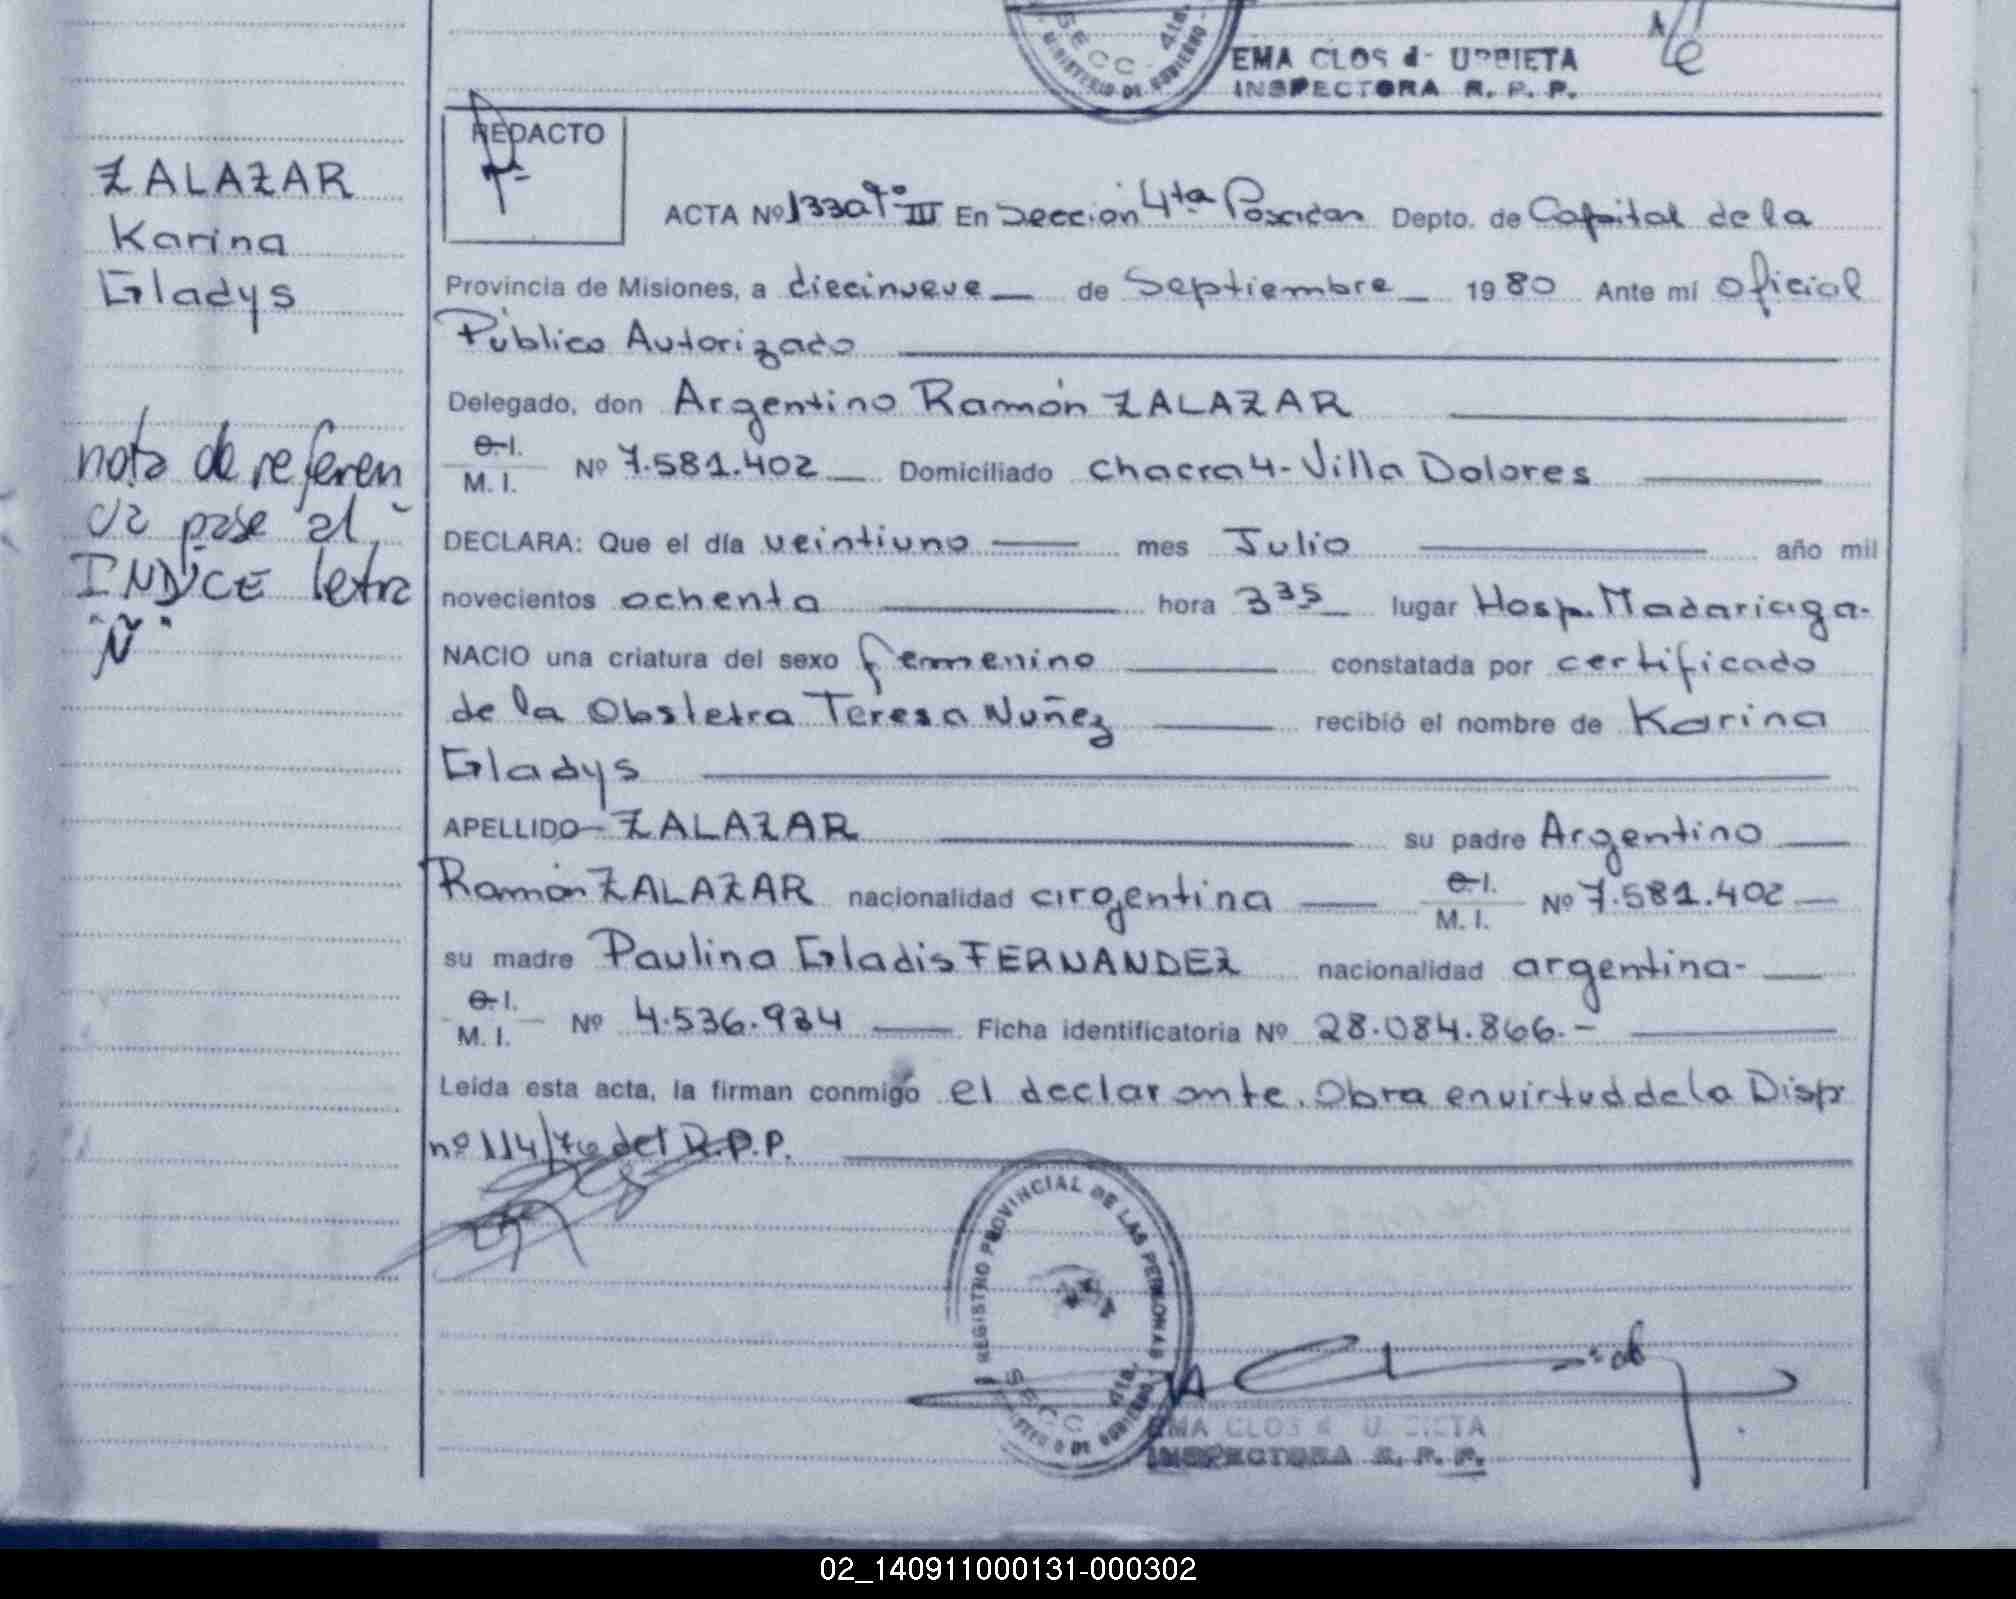 SECC 4ta.
MINISTERIO DE GOBIERNO
EMA CLOS d- URBIETA
INSPECTORA R. P. P.
REDACTO
ZALAZAR
Karina
Gladys
ACTA Nº 133 Tº III En Sección 4ta Posadas Depto. de Capital de la
Provincia de Misiones, a diecinueve de Septiembre 1980 Ante mi oficial
Público Autorizado
Delegado, don Argentino Ramón ZALAZAR
C.I. M.I. Nº 7.581.402 Domiciliado chacra 4-Villa Dolores
nota de referen
cia pase al
INDICE letra
"Ñ"
DECLARA: Que el día veintiuno mes Julio año mil
novecientos ochenta hora 3 35 lugar Hosp. Madariaga.
NACIO una criatura del sexo femenino constatada por certificado
de la Obstetra Teresa Nuñez recibió el nombre de Karina
Gladys
APELLIDO ZALAZAR su padre Argentino
Ramón ZALAZAR nacionalidad argentina C.I. M.I. Nº 7.581.402
su madre Paulina Gladis FERNANDEZ nacionalidad argentina-
C.I. M.I. Nº 4.536.934 Ficha identificatoria Nº 28.084.866.-
Leída esta acta, la firman conmigo el declarante. Obra en virtud de la Disp.
nº 114/76 del R.P.P.
REGISTRO PROVINCIAL DE LAS PERSONAS
SECC 4ta.
MINISTERIO DE GOBIERNO
EMA CLOS d U BIETA
INSPECTORA R. P. P.
02_140911000131-000302